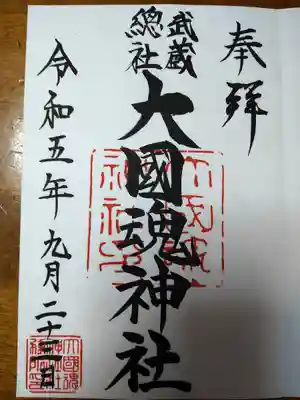 奉拝
武蔵
總社
大國魂神社
令和五年九月二十三日